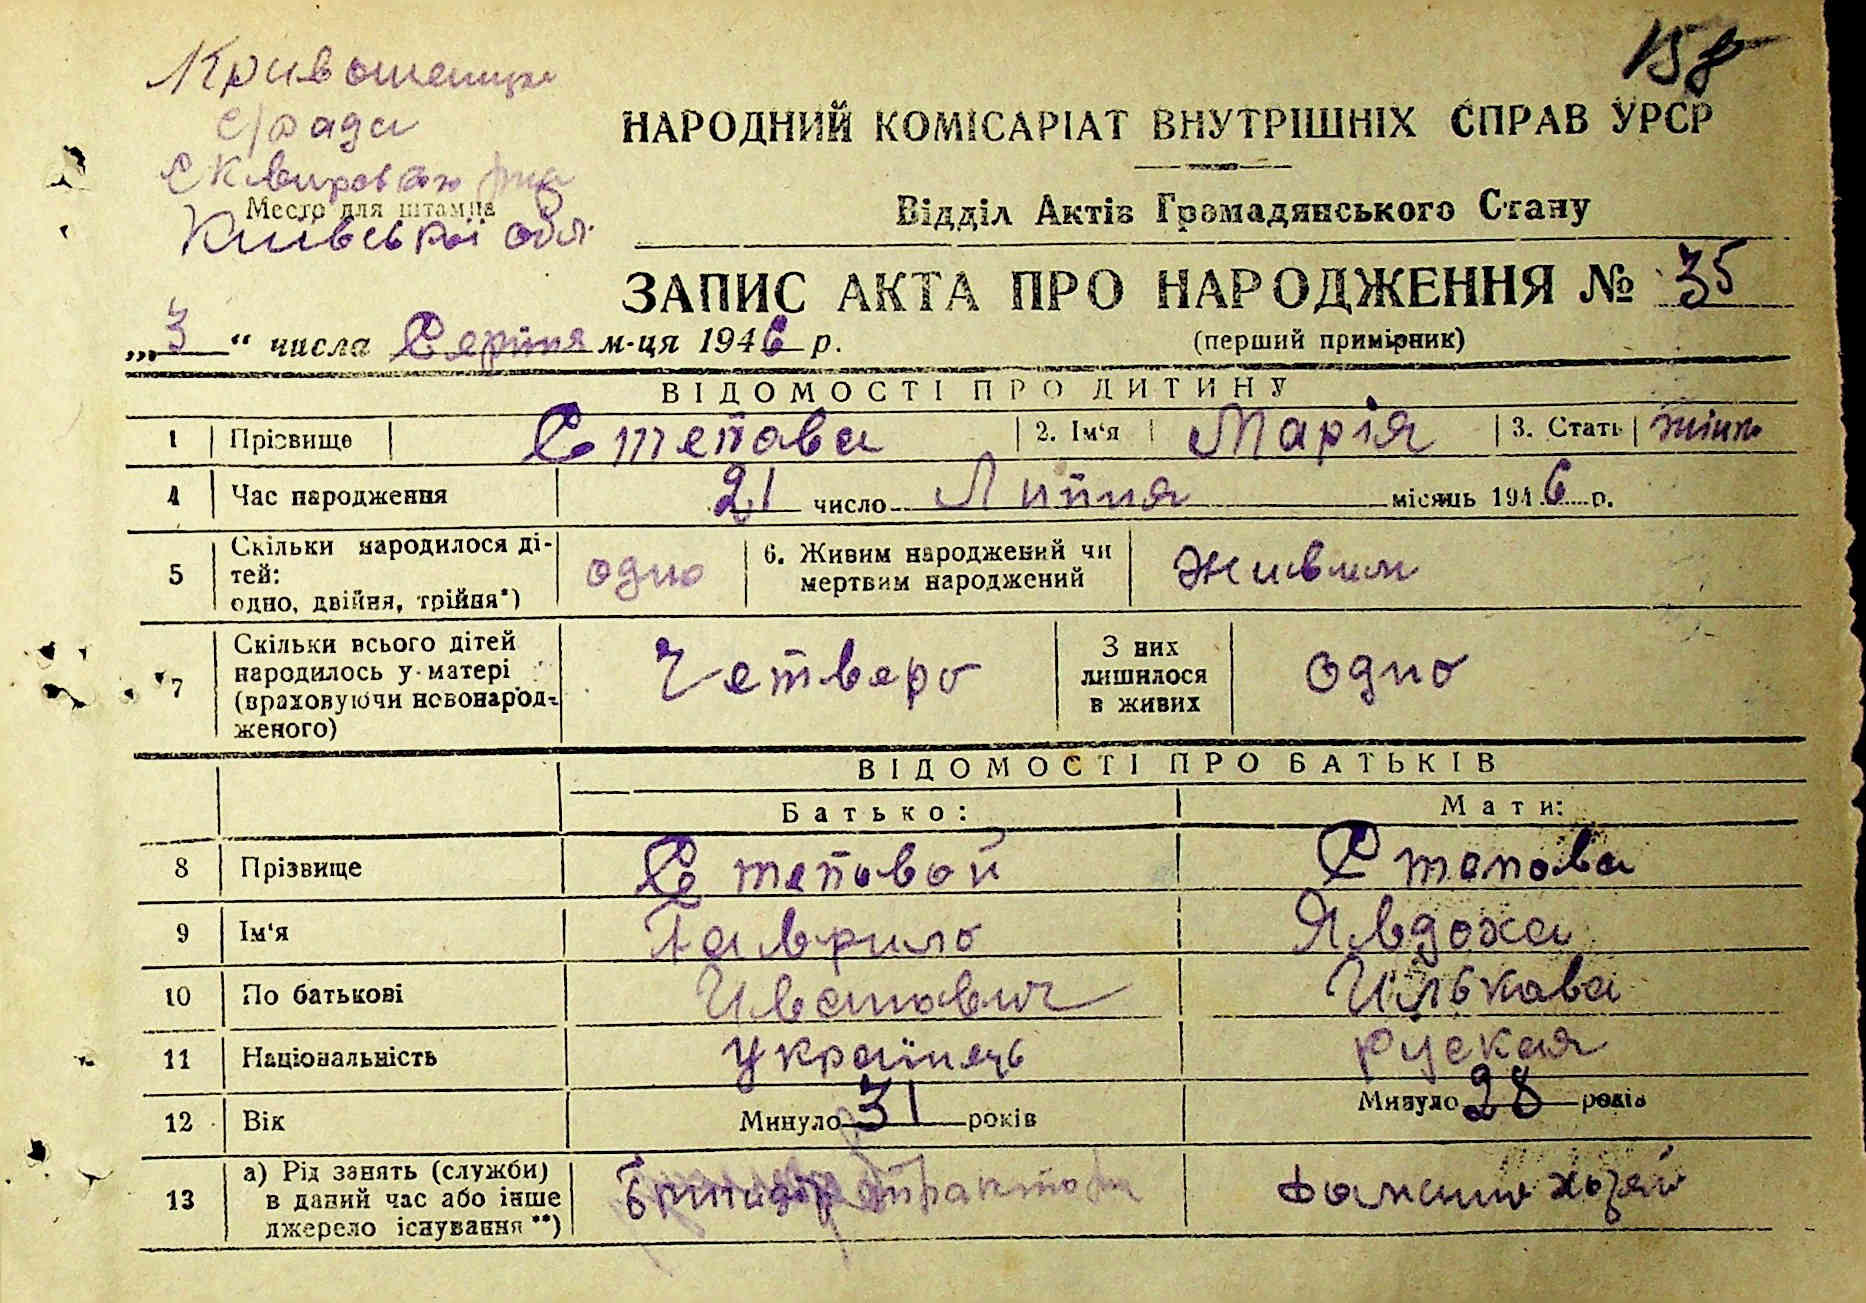 158
Кривошеинци
с/рада
Сквирского р-на
Место для штампа
Київської обл.
НАРОДНИЙ КОМІСАРІАТ ВНУТРІШНІХ СПРАВ УРСР
Відділ Актів Громадянського Стану
ЗАПИС АКТА ПРО НАРОДЖЕННЯ № 35
„3“ числа Серпня м-ця 1946 р.
(перший примірник)
ВІДОМОСТІ ПРО ДИТИНУ
1 Прізвище Степова 2. Ім‘я Марія 3. Стать жіноч
4 Час народження 21 число Липня місяць 1946 р.
5 Скільки народилося ді-
тей:
одно, двійня, трійня*) одно 6. Живим народжений чи
мертвим народжений живим
7 Скільки всього дітей
народилось у матері
(враховуючи новонарод-
женого) Четверо З них
лишилося
в живих одно
ВІДОМОСТІ ПРО БАТЬКІВ
Батько: Мати:
8 Прізвище Степовой Степова
9 Ім‘я Гаврило Явдоха
10 По батькові Иванович Илькова
11 Національність українець руская
12 Вік Минуло 31 років Минуло 28 років
13 а) Рід занять (служби)
в даний час або інше
джерело існування **) Бригадір трактори домашнє хозяй